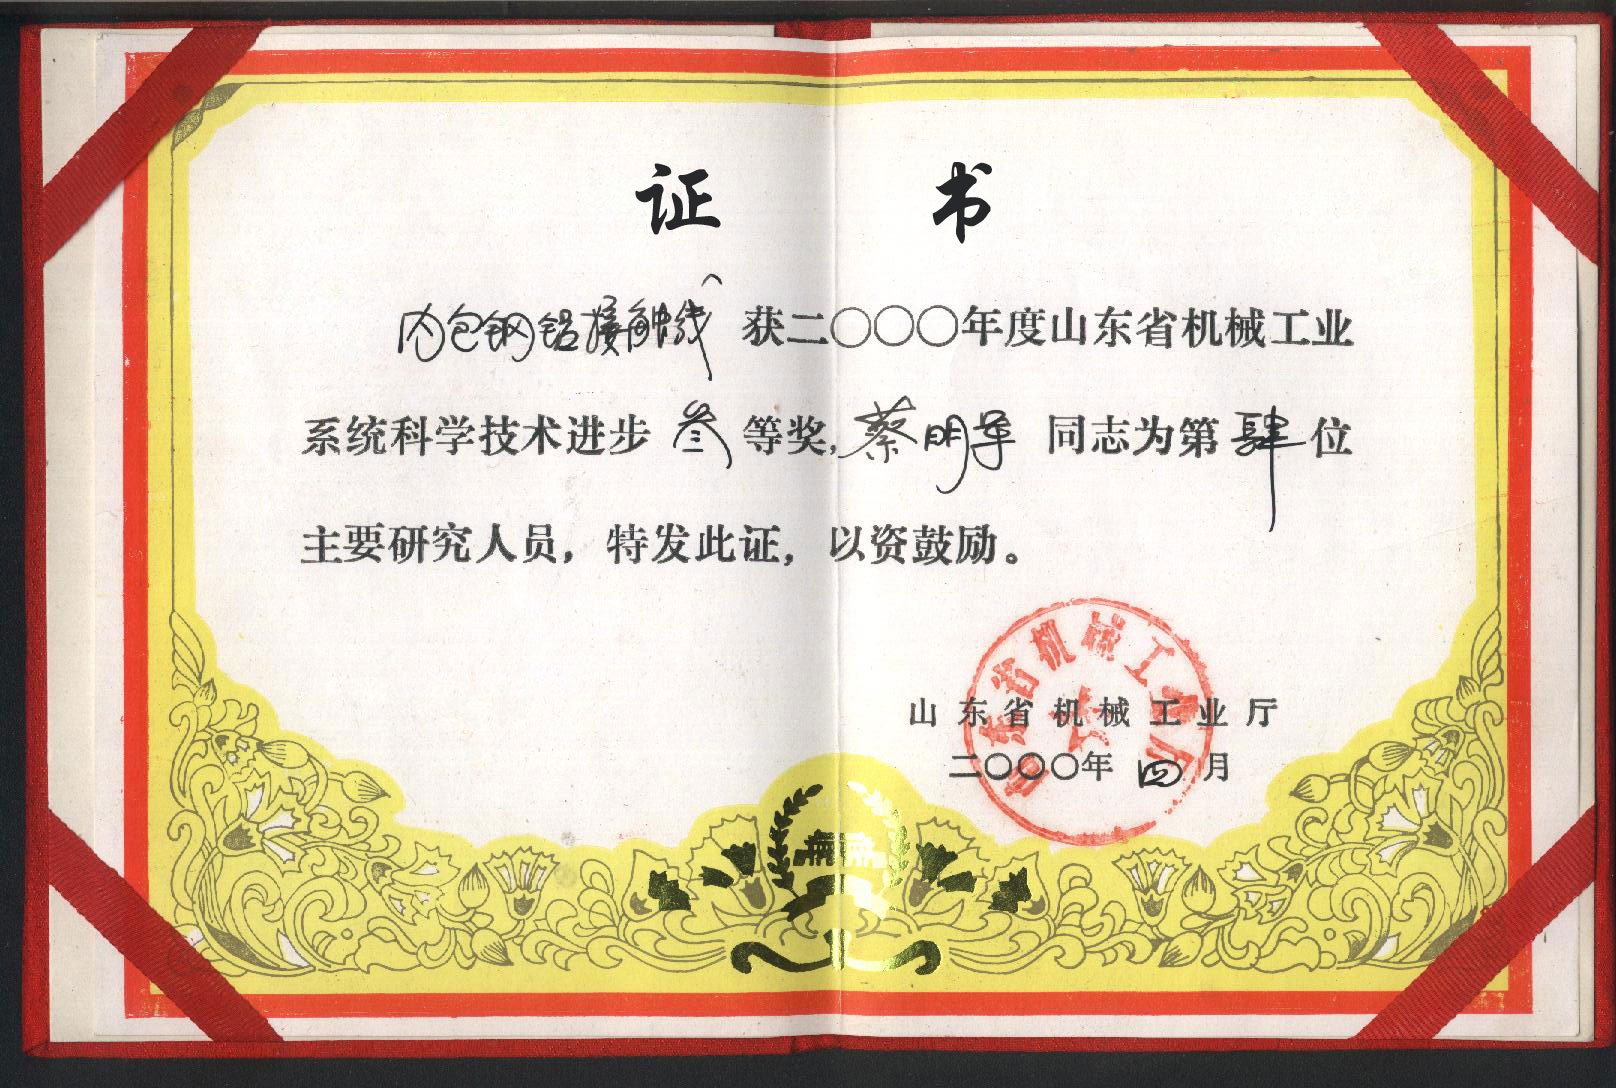 证书
内包钢铝接触线 获二〇〇〇年度山东省机械工业
系统科学技术进步 叁 等奖,蔡明军 同志为第肆位
主要研究人员，特发此证，以资鼓励。
山东省机械工业厅
山东省机械工业厅
二〇〇〇年 四 月